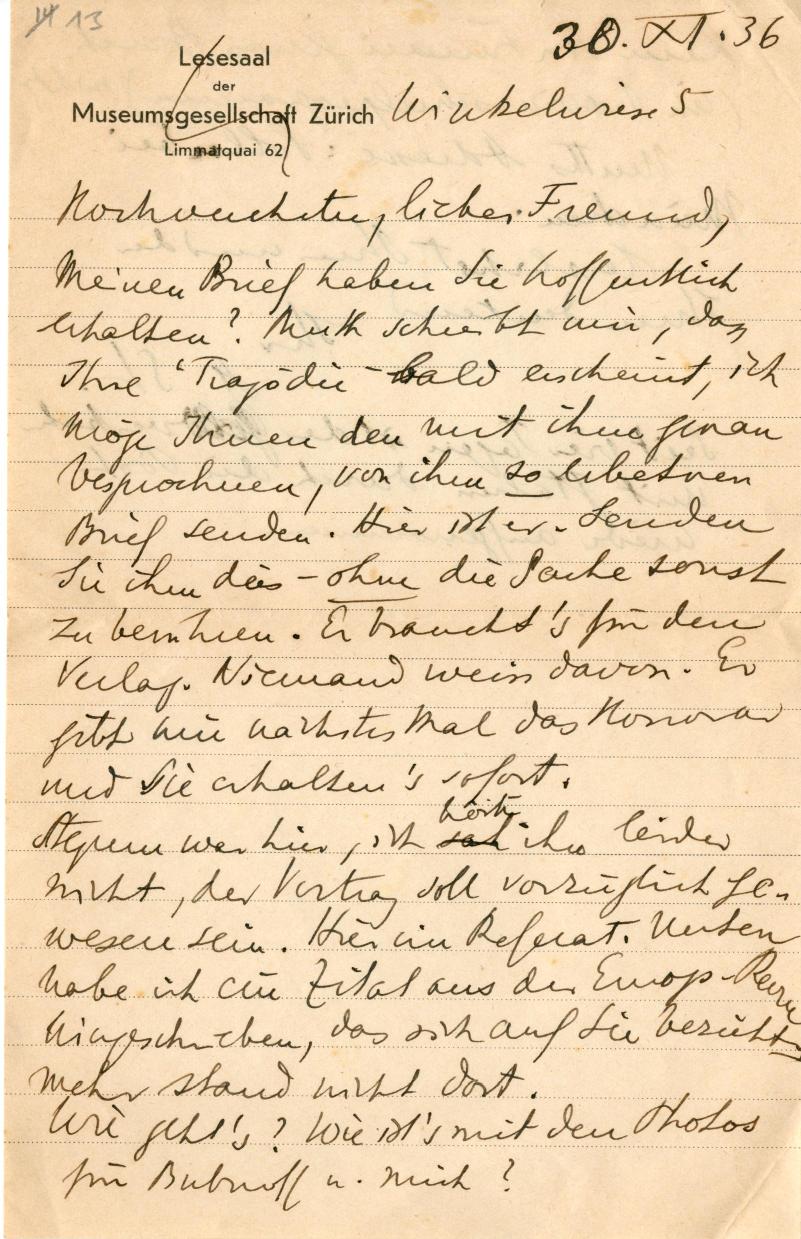 13
30. XI. 36
Lesesaal
der
Museumsgesellschaft Zürich Winkelwiese 5
Limmatquai 62
Hochverehrter, lieber Freund,
Meinen Brief haben Sie hoffentlich
erhalten? Muth schreibt mir, dass
Ihre "Tragödie" bald erscheint, ich
möge Ihnen den mit ihm genau
besprochnen, von ihm so erbetnen
Brief senden. Hier ist er. Senden
Sie ihm dies – ohne die Sache sonst
zu berühren. Er braucht's für den
Verlag. Niemand weiss davon. Er
gibt mir nächstes Mal das Honorar
und Sie erhalten's sofort.
war hier, ich hörte ihn leider
nicht, der Vortrag soll vorzüglich ge-
wesen sein. Hier ein Referat. Unten
habe ich ein Zital aus der Europ. Revue
hingeschrieben, das sich auf Sie bezieht,
mehr stand nicht dort.
Wie geht's? Wie ist's mit den Photos
für Bubnoff u. mich?